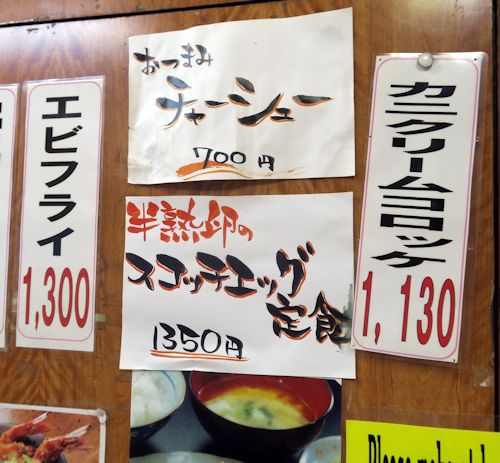 エビフライ
1,300
おつまみ
チャーシュー
700円
半熟卵の
スコッチエッグ
定食
1350円
カニクリームコロッケ
1,130
Please make